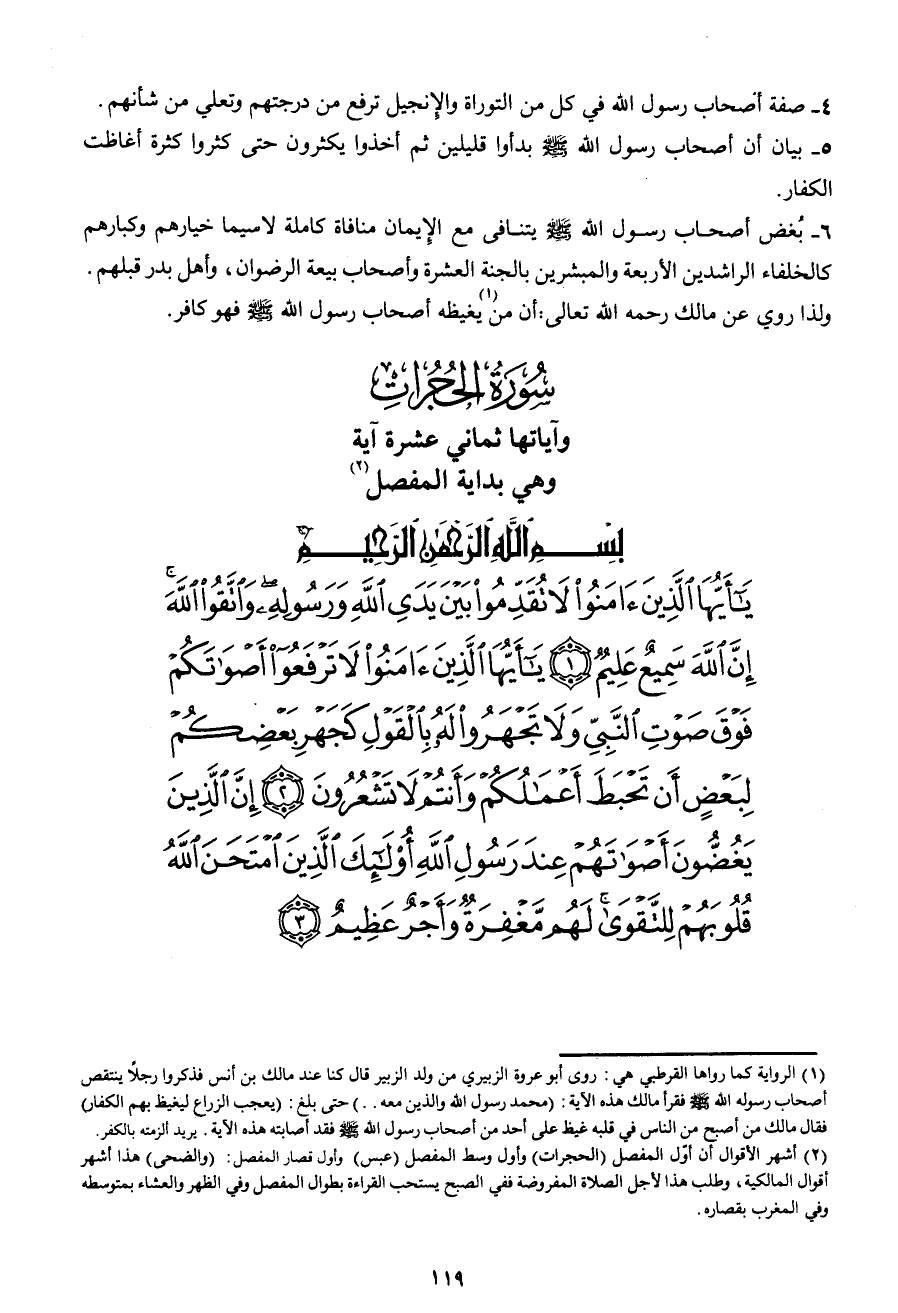 ٤ـ صفة أصحاب رسول الله في كل من التوراة والإنجيل ترفع من درجتهم وتعلي من شأنهم.
٥ـ بيان أن أصحاب رسول الله ﷺ بدأوا قليلين ثم أخذوا يكثرون حتى كثروا كثرة أغاظت
الكفار.
٦ـ بُغض أصحاب رسول الله ﷺ يتنافى مع الإيمان منافاة كاملة لاسيما خيارهم وكبارهم
كالخلفاء الراشدين الأربعة والمبشرين بالجنة العشرة وأصحاب بيعة الرضوان، وأهل بدر قبلهم.
ولذا روي عن مالك رحمه الله تعالى:أن من(١) يغيظه أصحاب رسول الله ﷺ فهو كافر.
سُورَةُ الحُجُرَاتِ
وآياتها ثماني عشرة آية
وهي بداية المفصل(٢)
بِسْمِ ٱللَّهِ ٱلرَّحْمَٰنِ ٱلرَّحِيمِ
يَٰٓأَيُّهَا ٱلَّذِينَ ءَامَنُوا۟ لَا تُقَدِّمُوا۟ بَيْنَ يَدَىِ ٱللَّهِ وَرَسُولِهِۦ ۖ وَٱتَّقُوا۟ ٱللَّهَ ۚ
إِنَّ ٱللَّهَ سَمِيعٌ عَلِيمٌ ١ يَٰٓأَيُّهَا ٱلَّذِينَ ءَامَنُوا۟ لَا تَرْفَعُوٓا۟ أَصْوَٰتَكُمْ
فَوْقَ صَوْتِ ٱلنَّبِىِّ وَلَا تَجْهَرُوا۟ لَهُۥ بِٱلْقَوْلِ كَجَهْرِ بَعْضِكُمْ
لِبَعْضٍ أَن تَحْبَطَ أَعْمَٰلُكُمْ وَأَنتُمْ لَا تَشْعُرُونَ ٢ إِنَّ ٱلَّذِينَ
يَغُضُّونَ أَصْوَٰتَهُمْ عِندَ رَسُولِ ٱللَّهِ أُو۟لَٰٓئِكَ ٱلَّذِينَ ٱمْتَحَنَ ٱللَّهُ
قُلُوبَهُمْ لِلتَّقْوَىٰ ۚ لَهُم مَّغْفِرَةٌ وَأَجْرٌ عَظِيمٌ ٣
(١) الرواية كما رواها القرطبي هي: روى أبو عروة الزبيري من ولد الزبير قال كنا عند مالك بن أنس فذكروا رجلًا ينتقص
أصحاب رسوله الله ﷺ فقرأ مالك هذه الآية: (محمد رسول الله والذين معه . .) حتى بلغ: (يعجب الزراع ليغيظ بهم الكفار)
فقال مالك من أصبح من الناس في قلبه غيظ على أحد من أصحاب رسول الله ﷺ فقد أصابته هذه الآية. يريد ألزمته بالكفر.
(٢) أشهر الأقوال أن أوّل المفصل (الحجرات) وأول وسط المفصل (عبس) وأول قصار المفصل: (والضحى) هذا أشهر
أقوال المالكية، وطلب هذا لأجل الصلاة المفروضة ففي الصبح يستحب القراءة بطوال المفصل وفي الظهر والعشاء بمتوسطه
وفي المغرب بقصاره.
١١٩